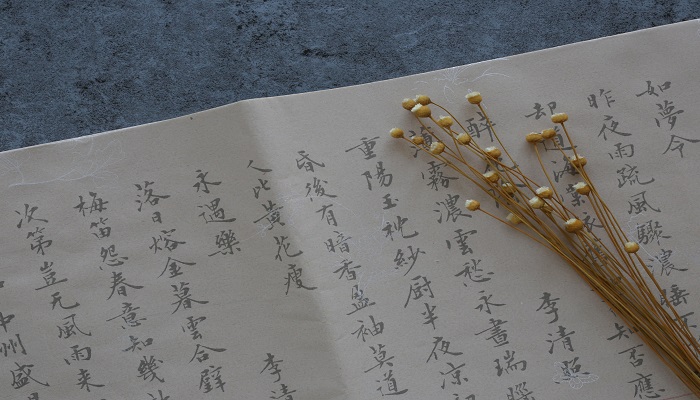 如夢令
昨夜雨疏風驟濃睡不
却道海棠知否應
醉李清照
薄霧濃雲愁永晝瑞腦
重陽玉枕紗厨半夜凉初
昏後有暗香盈袖莫道
人比黃花瘦
永遇樂 李清
落日熔金暮雲合璧
梅笛怨春意知幾
次第豈无風雨来
中州盛